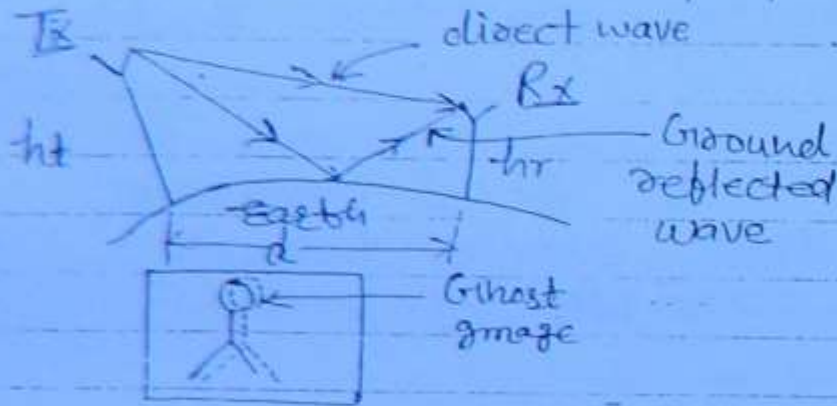 Tx
direct wave
Rx
ht
hr
Ground
reflected
wave
Earth
d
Ghost
gmage